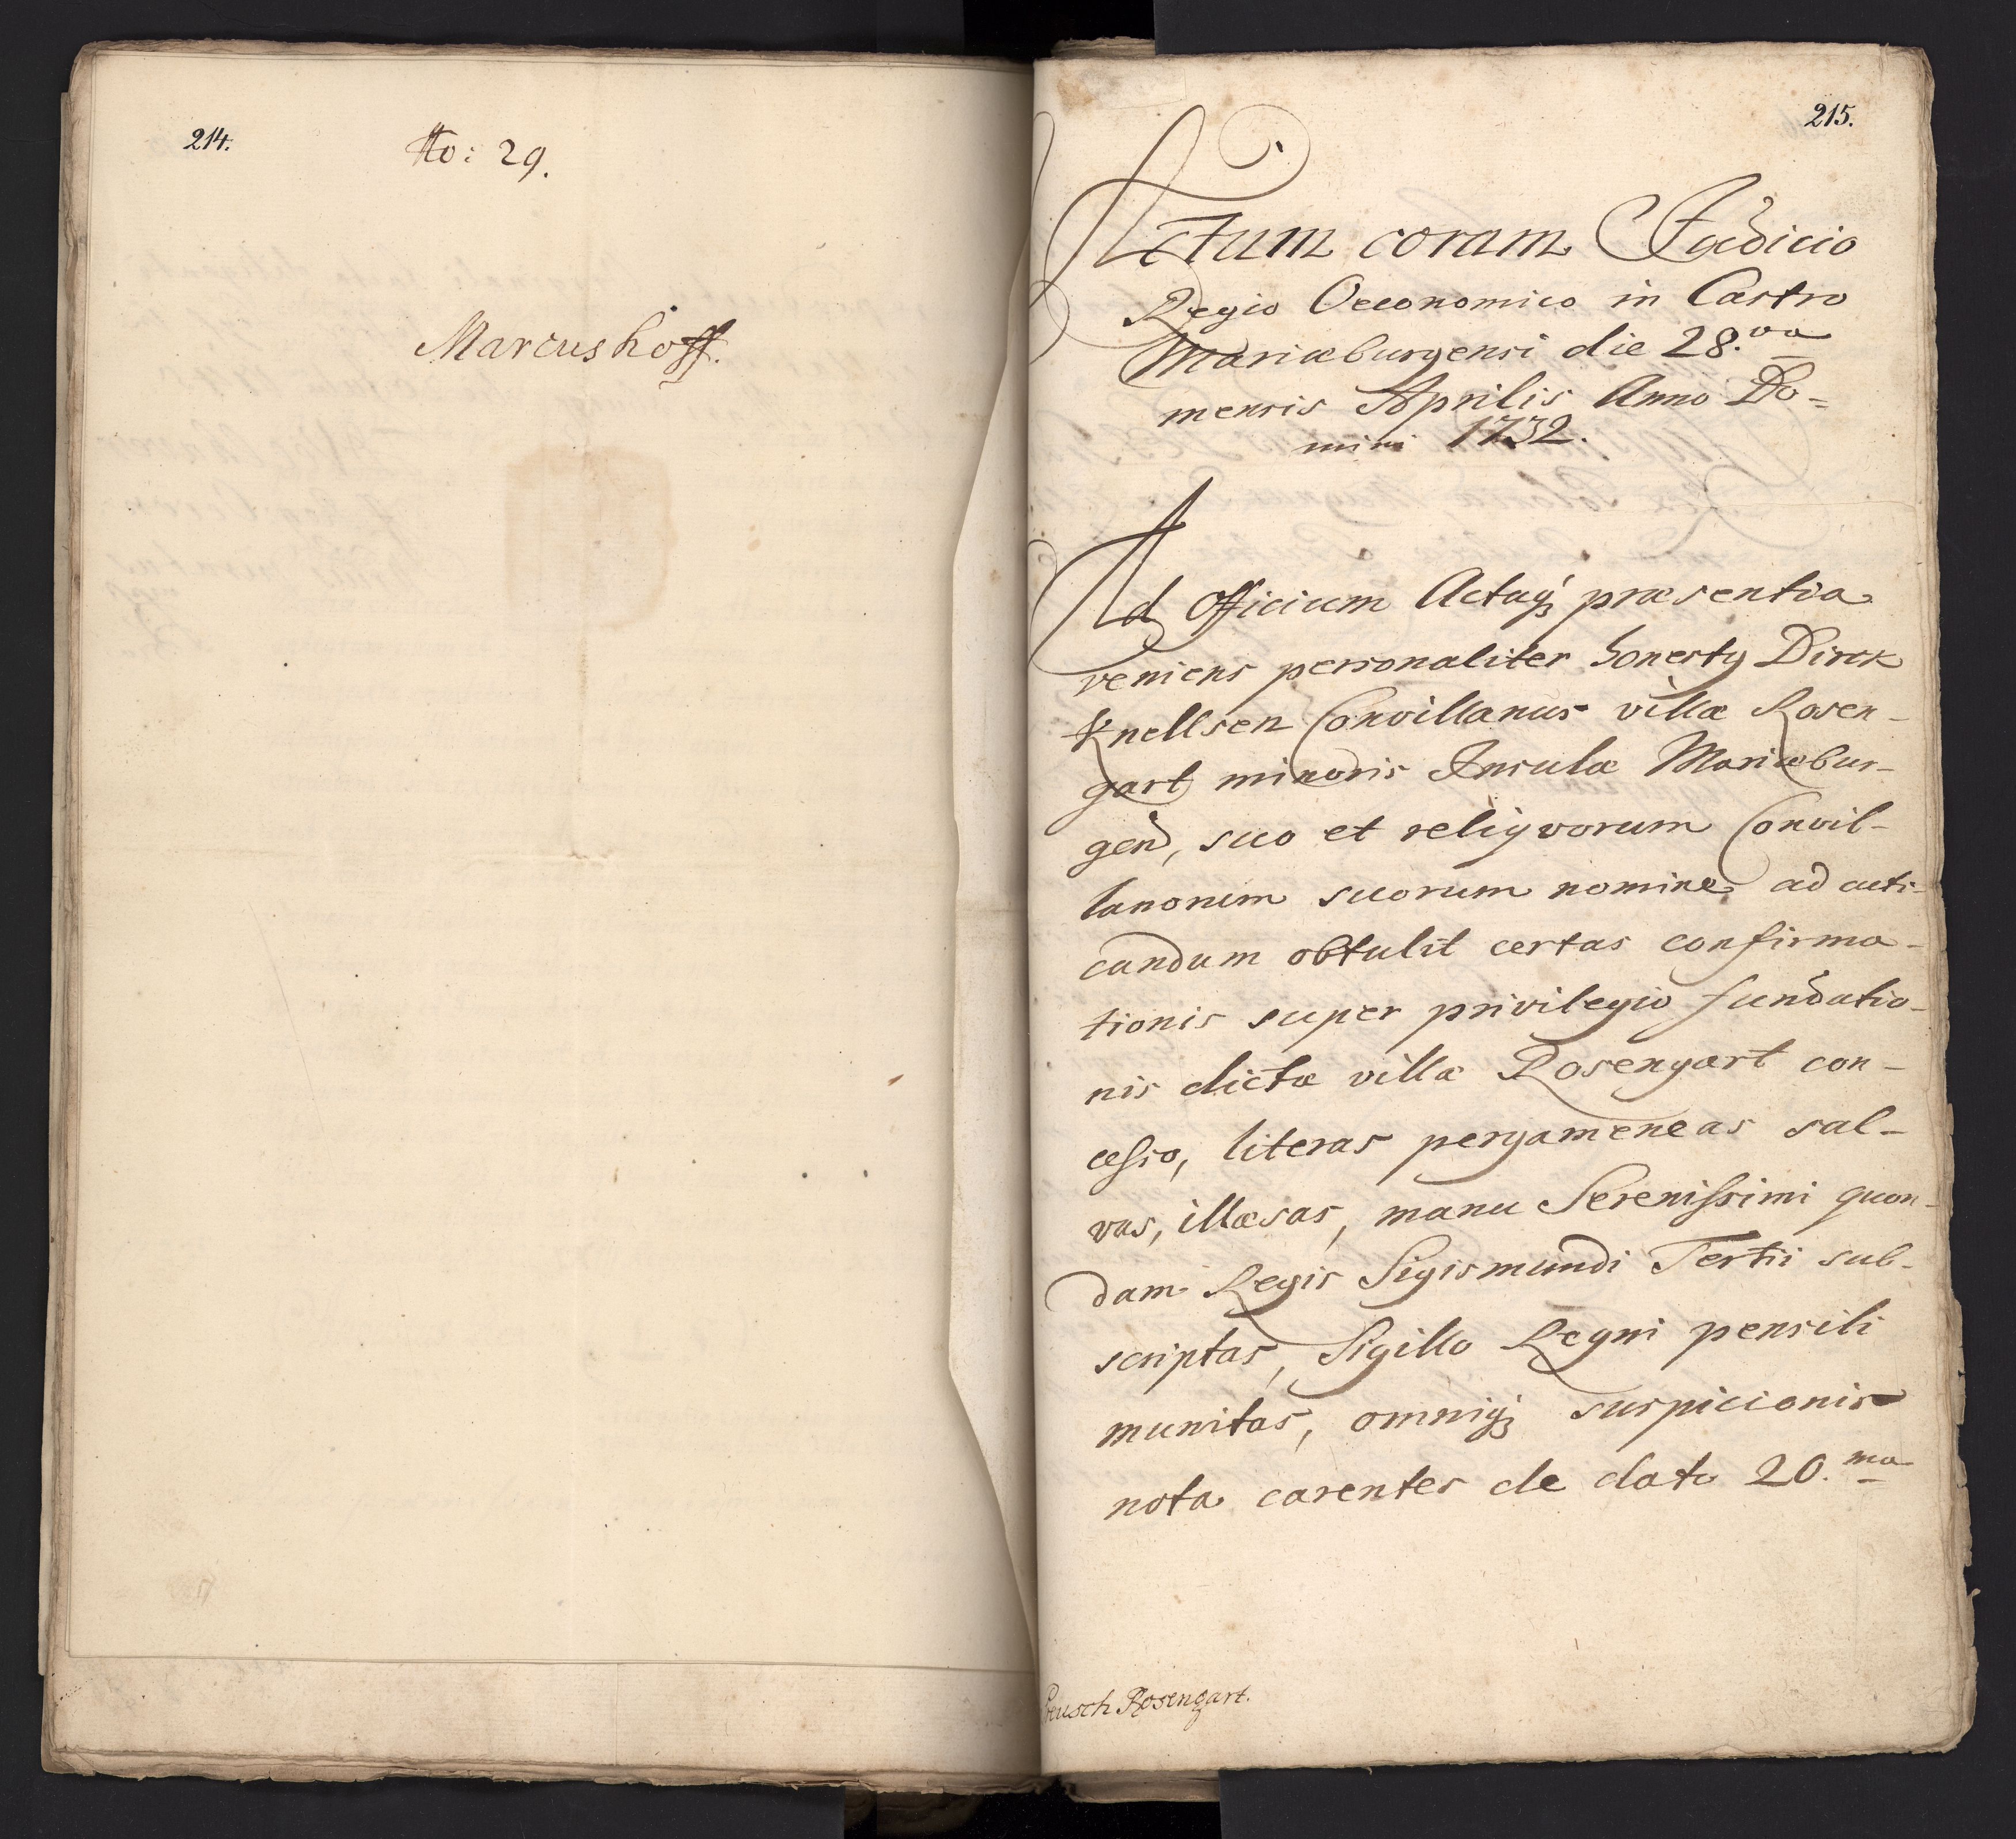 214.
No: 29.
Marcushoff.
215.
Actum coram Judicio
Regio Oeconomico in Castro
Mariæburgensi die 28.va
mensis Aprilis Anno Do=
mini 1732.
Ad Officium Actaq; præsentia
veniens personaliter honestg Dirck
Knellsen Convillanus villæ Rosen-
gart minoris Insulæ Mariæbur-
gen, suo et reliqvorum Convil-
lanorum suorum nomine ad acti-
candum obtulit certas confirma-
tionis super privilegio fundatio-
nis dictæ villæ Rosengart con-
cesso, literas pergameneas sal-
vas, illæsas, manu Serenissimi quon-
dam Regis Sigismundi Tertii sub-
scriptas, Sigillo Regni pensili
munitas, omniq; suspicionis
nota carentes de dato 20.ma
Preusch Rosengart.